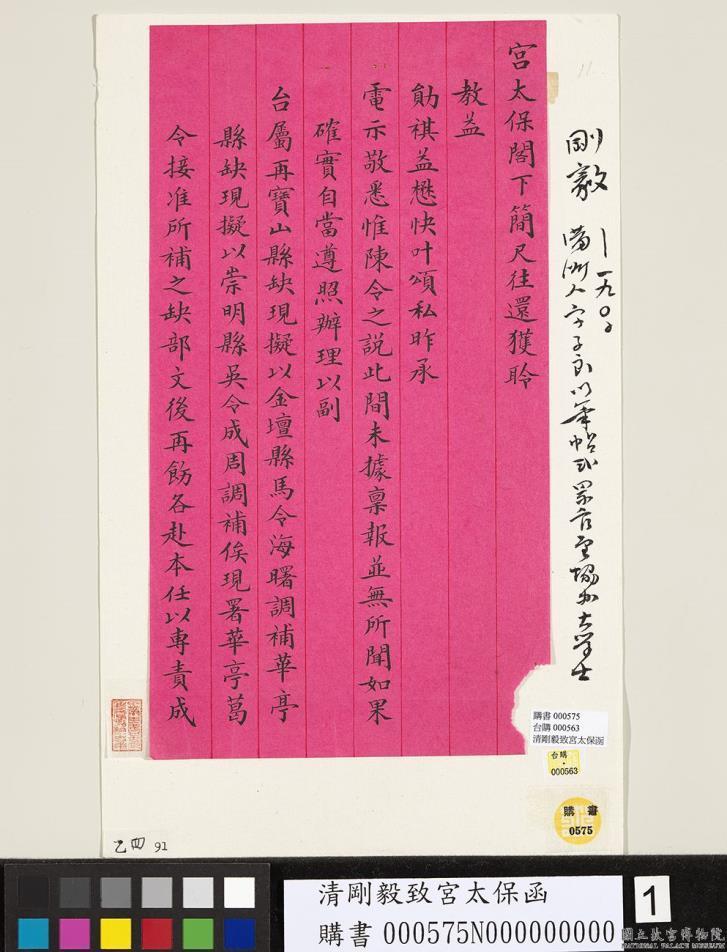 剛毅 ─一九〇〇
滿洲人字子良以筆帖式累官至協办大學士
宮太保閣下簡尺往還獲聆
教益
勛祺益懋快叶頌私昨承
電示敬悉惟陳令之説此間未據禀報並無所聞如果
確實自當遵照辦理以副
台屬再寶山縣缺現擬以金壇縣馬令海曙調補華亭
縣缺現擬以崇明縣吳令成周調補俟現署華亭葛
令接准所補之缺部文後再飭各赴本任以專責成
購書 000575
台購 000563
清剛毅致宮太保函
台購
000563
購書
0575
乙四 91
清剛毅致宮太保函
購書 000575N000000000
1
國立故宮博物院
NATIONAL PALACE MUSEUM